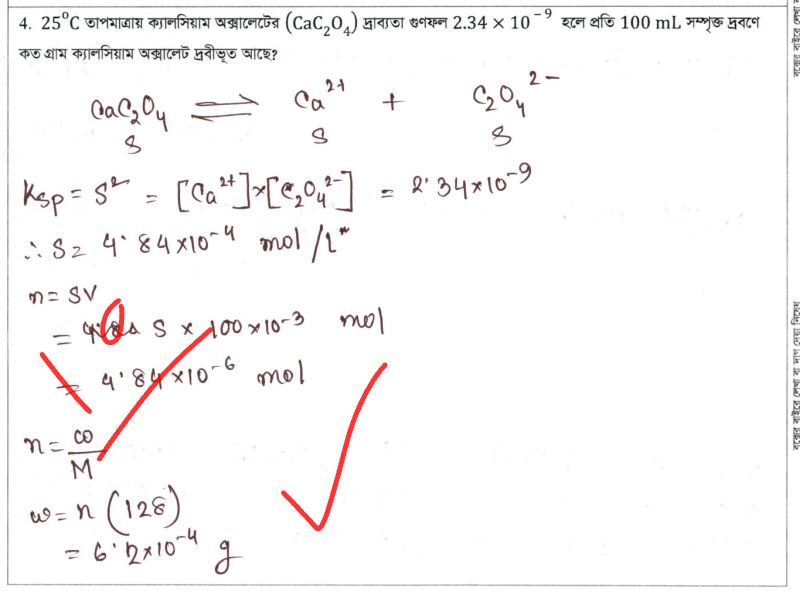 4. 25°C তাপমাত্রায় ক্যালসিয়াম অক্সালেটের (CaC₂O₄) দ্রাব্যতা গুণফল 2.34 × 10⁻⁹ হলে প্রতি 100 mL সম্পৃক্ত দ্রবণে
কত গ্রাম ক্যালসিয়াম অক্সালেট দ্রবীভূত আছে?
CaC₂O₄ ⇌ Ca²⁺ + C₂O₄²⁻
S S S
Ksp = S² = [Ca²⁺]×[C₂O₄²⁻] = 2.34×10⁻⁹
∴ S = 4.84×10⁻⁴ mol/L
n = SV
= S × 100×10⁻³ mol
= 4.84×10⁻⁶ mol
n = ω/M
ω = n (128)
= 6.2×10⁻⁴ g
বক্সের বাইরে লেখা বা দাগ দেয়া নিষেধ